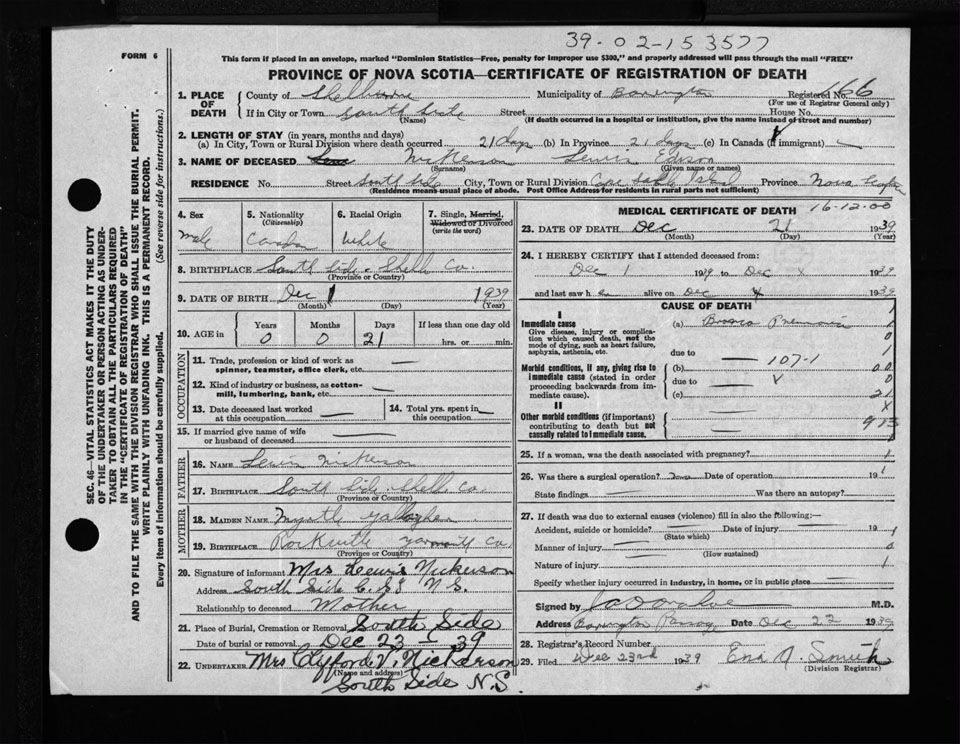 39-02-153577
FORM 6
This form if placed in an envelope, marked "Dominion Statistics—Free, penalty for improper use $300," and properly addressed will pass through the mail "FREE"
PROVINCE OF NOVA SCOTIA—CERTIFICATE OF REGISTRATION OF DEATH
SEC. 46—VITAL STATISTICS ACT MAKES IT THE DUTY
OF THE UNDERTAKER OR PERSON ACTING AS UNDER-
TAKER TO OBTAIN ALL THE PARTICULARS REQUIRED
IN THE "CERTIFICATE OF REGISTRATION OF DEATH"
AND TO FILE THE SAME WITH THE DIVISION REGISTRAR WHO SHALL ISSUE THE BURIAL PERMIT.
WRITE PLAINLY WITH UNFADING INK. THIS IS A PERMANENT RECORD.
Every item of information should be carefully supplied. (See reverse side for instructions.)
1. PLACE OF DEATH County of Shelburne Municipality of Barrington Registered No. 66
(For use of Registrar General only)
If in City or Town South Side Street House No.
(Name) (If death occurred in a hospital or institution, give the name instead of street and number)
2. LENGTH OF STAY (in years, months and days)
(a) In City, Town or Rural Division where death occurred 21 days (b) In Province 21 days (c) In Canada (if immigrant) —
3. NAME OF DECEASED Nickerson Lewis Edison
(Surname) (Given name or names)
RESIDENCE No. Street South Side City, Town or Rural Division Cape Sable Island Province Nova Scotia
(Residence means usual place of abode. Post Office Address for Residents in rural parts not sufficient)
4. Sex
Male
5. Nationality
(Citizenship)
Canadian
6. Racial Origin
White
7. Single, Married,
Widowed or Divorced
(write the word)
8. BIRTHPLACE South Side - Shelb Co.
(Province or Country)
9. DATE OF BIRTH Dec 1 1939
(Month) (Day) (Year)
10. AGE in Years Months Days If less than one day old
0 0 21 hrs. or min.
OCCUPATION
11. Trade, profession or kind of work as
spinner, teamster, office clerk, etc. —
12. Kind of industry or business, as cotton-
mill, lumbering, bank, etc. —
13. Date deceased last worked
at this occupation —
14. Total yrs. spent in
this occupation —
15. If married give name of wife
or husband of deceased —
FATHER
16. NAME Lewis Nickerson
17. BIRTHPLACE South Side - Shelb Co.
(Province or Country)
MOTHER
18. MAIDEN NAME Myrtle Gallagher
19. BIRTHPLACE Yarmouth Co.
(Province or Country)
20. Signature of informant Mrs Lewis Nickerson
Address South Side C.S.I N.S.
Relationship to deceased Mother
21. Place of Burial, Cremation or Removal South Side
Date of burial or removal Dec 23 - 39
22. UNDERTAKER Mrs Clyfford V. Nickerson
(Name and address)
South Side N.S.
MEDICAL CERTIFICATE OF DEATH 16-12-00
23. DATE OF DEATH Dec 21 1939
(Month) (Day) (Year)
24. I HEREBY CERTIFY that I attended deceased from:
Dec 1 1939 to Dec 1939
and last saw h alive on Dec 1939
CAUSE OF DEATH
I
Immediate cause
Give disease, injury or complica-
tion which caused death, not the
mode of dying, such as heart failure,
asphyxia, asthenia, etc.
(a) Broncho Pneumonia
due to —
Morbid conditions, if any, giving rise to
immediate cause (stated in order
proceeding backwards from im-
mediate cause).
(b) — 107-1
due to —
(c)
II
Other morbid conditions (if important)
contributing to death but not
causally related to immediate cause.
1
1
0
1
00
0
21
X
973
1
25. If a woman, was the death associated with pregnancy? —
26. Was there a surgical operation? Date of operation 19
State findings — Was there an autopsy? —
27. If death was due to external causes (violence) fill in also the following:—
Accident, suicide or homicide? — Date of injury — 19
(State which)
Manner of injury —
(How sustained)
Nature of injury —
Specify whether injury occurred in industry, in home, or in public place —
Signed by M.D.
Address Barrington Passage Date Dec 22 1939
28. Registrar's Record Number
29. Filed Dec 23rd 1939 Smith
(Division Registrar)